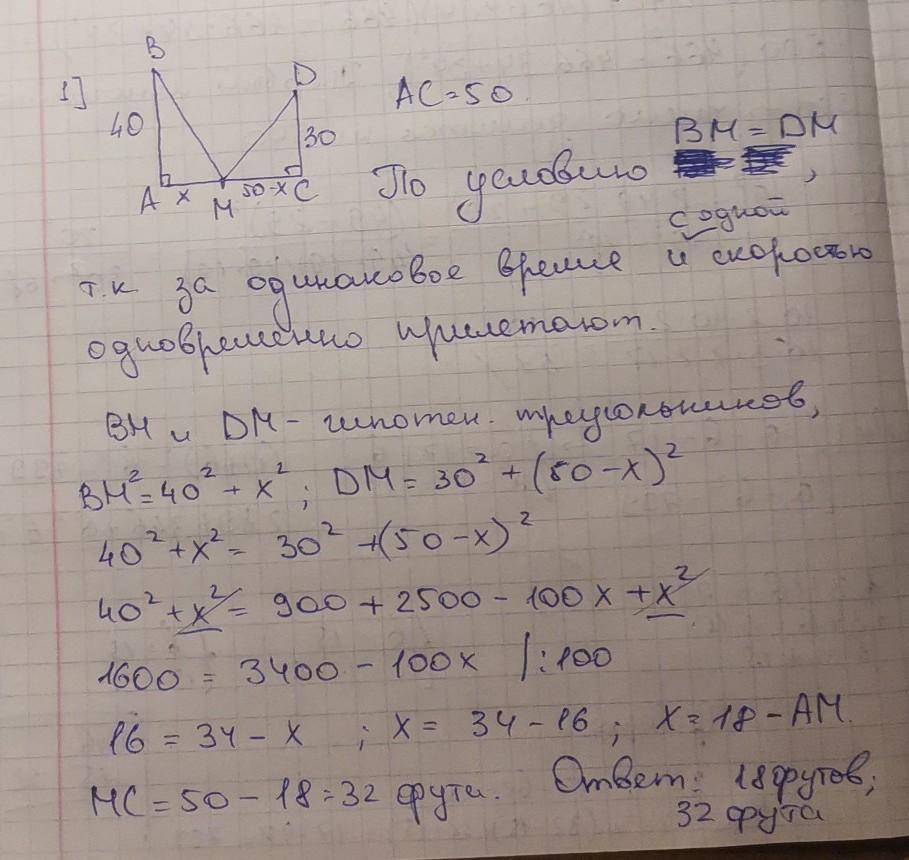 1]
B
D
40
30
A x M 50-x C
AC=50.
BM = DM
По условию ,
с одной
т.к. за одинаковое время и скоростью
одновременно прилетают.
BM и DM - гипотен. треугольников,
BM²=40²+x²; DM=30²+(50-x)²
40²+x²= 30²+(50-x)²
40²+x²= 900+2500-100x+x²
1600 = 3400-100x /:100
16 = 34-x ; x= 34-16; x=18-AM.
MC=50-18=32 фута. Ответ: 18футов;
32 фута